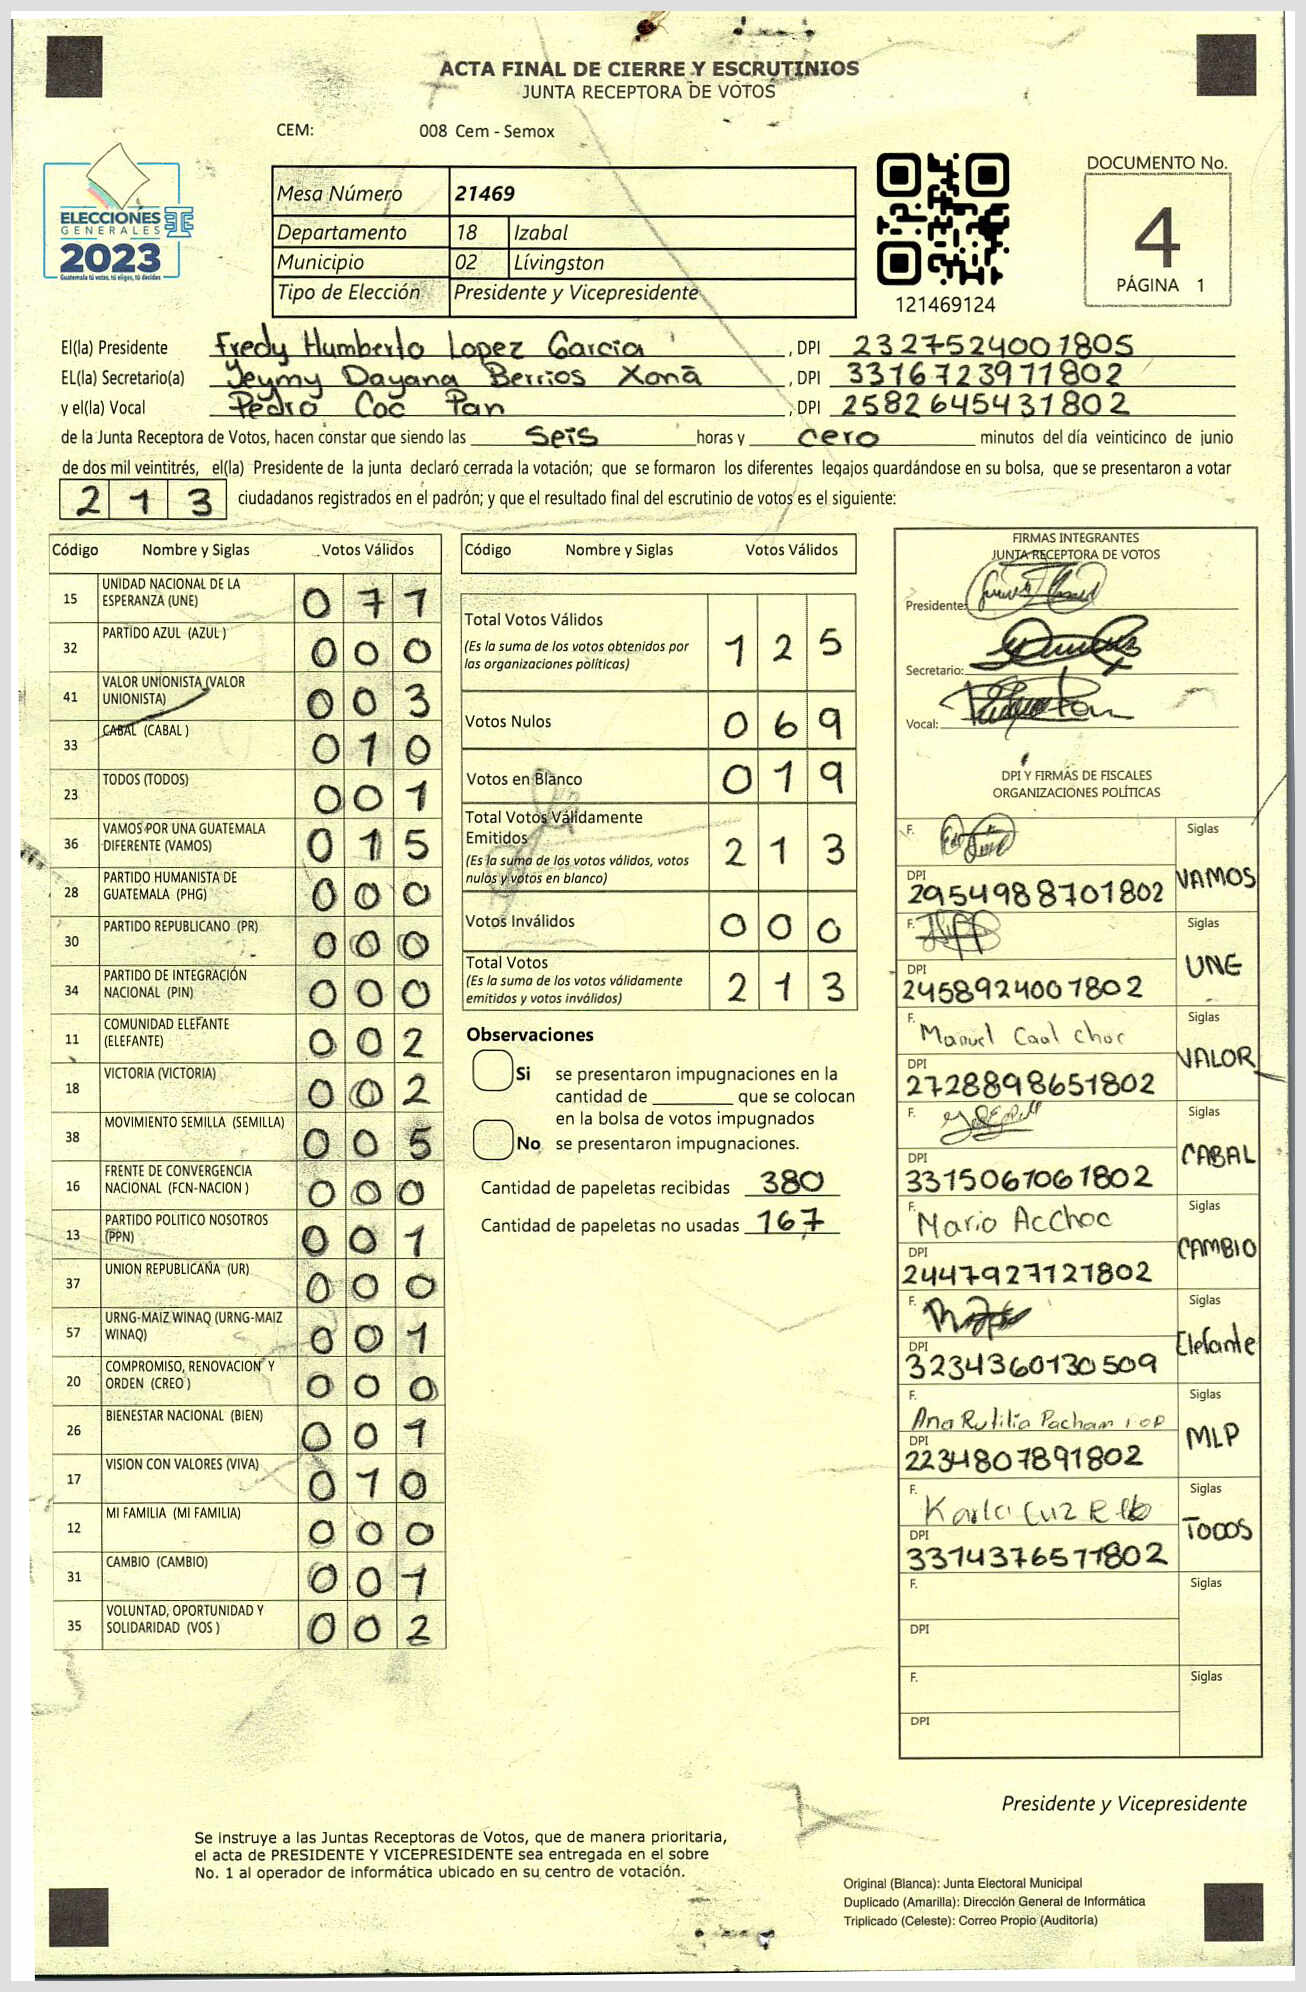 ACTA FINAL DE CIERRE Y ESCRUTINIOS
JUNTA RECEPTORA DE VOTOS
CEM: 008 Cem - Semox
ELECCIONES
GENERALES
2023
Guatemala tú votas, tú eliges, tú decides
Mesa Número 21469
Departamento 18 Izabal
Municipio 02 Lívingston
Tipo de Elección Presidente y Vicepresidente
121469124
DOCUMENTO No.
4
PÁGINA 1
El(la) Presidente Fredy Humberto Lopez Garcia , DPI 2327524001805
EL(la) Secretario(a) Jeymy Dayana Berrios Xoná , DPI 3316723911802
y el(la) Vocal Pedro Coc Pan , DPI 2582645431802
de la Junta Receptora de Votos, hacen constar que siendo las Seis horas y cero minutos del día veinticinco de junio
de dos mil veintitrés, el(la) Presidente de la junta declaró cerrada la votación; que se formaron los diferentes legajos guardándose en su bolsa, que se presentaron a votar
213 ciudadanos registrados en el padrón; y que el resultado final del escrutinio de votos es el siguiente:
Código Nombre y Siglas Votos Válidos
15 UNIDAD NACIONAL DE LA ESPERANZA (UNE) 071
32 PARTIDO AZUL (AZUL ) 000
41 VALOR UNIONISTA (VALOR UNIONISTA) 003
33 CABAL (CABAL ) 010
23 TODOS (TODOS) 001
36 VAMOS POR UNA GUATEMALA DIFERENTE (VAMOS) 015
28 PARTIDO HUMANISTA DE GUATEMALA (PHG) 000
30 PARTIDO REPUBLICANO (PR) 000
34 PARTIDO DE INTEGRACIÓN NACIONAL (PIN) 000
11 COMUNIDAD ELEFANTE (ELEFANTE) 002
18 VICTORIA (VICTORIA) 002
38 MOVIMIENTO SEMILLA (SEMILLA) 005
16 FRENTE DE CONVERGENCIA NACIONAL (FCN-NACION ) 000
13 PARTIDO POLITICO NOSOTROS (PPN) 001
37 UNION REPUBLICANA (UR) 000
57 URNG-MAIZ WINAQ (URNG-MAIZ WINAQ) 001
20 COMPROMISO, RENOVACION Y ORDEN (CREO ) 000
26 BIENESTAR NACIONAL (BIEN) 001
17 VISION CON VALORES (VIVA) 010
12 MI FAMILIA (MI FAMILIA) 000
31 CAMBIO (CAMBIO) 001
35 VOLUNTAD, OPORTUNIDAD Y SOLIDARIDAD (VOS ) 002
Código Nombre y Siglas Votos Válidos
Total Votos Válidos 125
(Es la suma de los votos obtenidos por
las organizaciones políticas)
Votos Nulos 069
Votos en Blanco 019
Total Votos Válidamente
Emitidos 213
(Es la suma de los votos válidos, votos
nulos y votos en blanco)
Votos Inválidos 000
Total Votos 213
(Es la suma de los votos válidamente
emitidos y votos inválidos)
Observaciones
Si se presentaron impugnaciones en la
cantidad de ________ que se colocan
en la bolsa de votos impugnados
No se presentaron impugnaciones.
Cantidad de papeletas recibidas 380
Cantidad de papeletas no usadas 167
FIRMAS INTEGRANTES
JUNTA RECEPTORA DE VOTOS
Presidente:
Secretario:
Vocal:
DPI Y FIRMAS DE FISCALES
ORGANIZACIONES POLÍTICAS
F. Siglas
DPI VAMOS
2954988701802
F. Siglas
DPI UNE
2458924001802
F. Manuel Caal Choc Siglas
DPI VALOR
2728898651802
F. Siglas
DPI CABAL
3315067061802
F. Mario AcChoc Siglas
DPI CAMBIO
2447927121802
F. Siglas
DPI Elefante
3234360130509
F. Ana Rutilia Siglas
DPI MLP
2234807891802
F. Karla Siglas
DPI TODOS
3314376511802
F. Siglas
DPI
F. Siglas
DPI
Presidente y Vicepresidente
Se instruye a las Juntas Receptoras de Votos, que de manera prioritaria,
el acta de PRESIDENTE Y VICEPRESIDENTE sea entregada en el sobre
No. 1 al operador de informática ubicado en su centro de votación.
Original (Blanca): Junta Electoral Municipal
Duplicado (Amarilla): Dirección General de Informática
Triplicado (Celeste): Correo Propio (Auditoría)